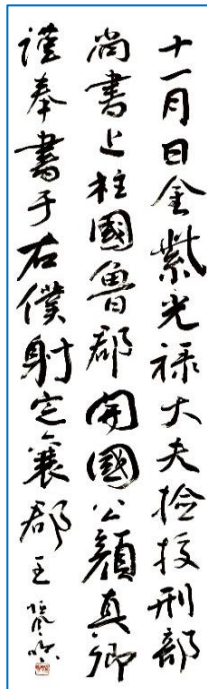 十一月日金紫光禄大夫檢挍刑部
尚書上柱國魯郡開國公顏真卿
謹奉書于右僕射定襄郡王